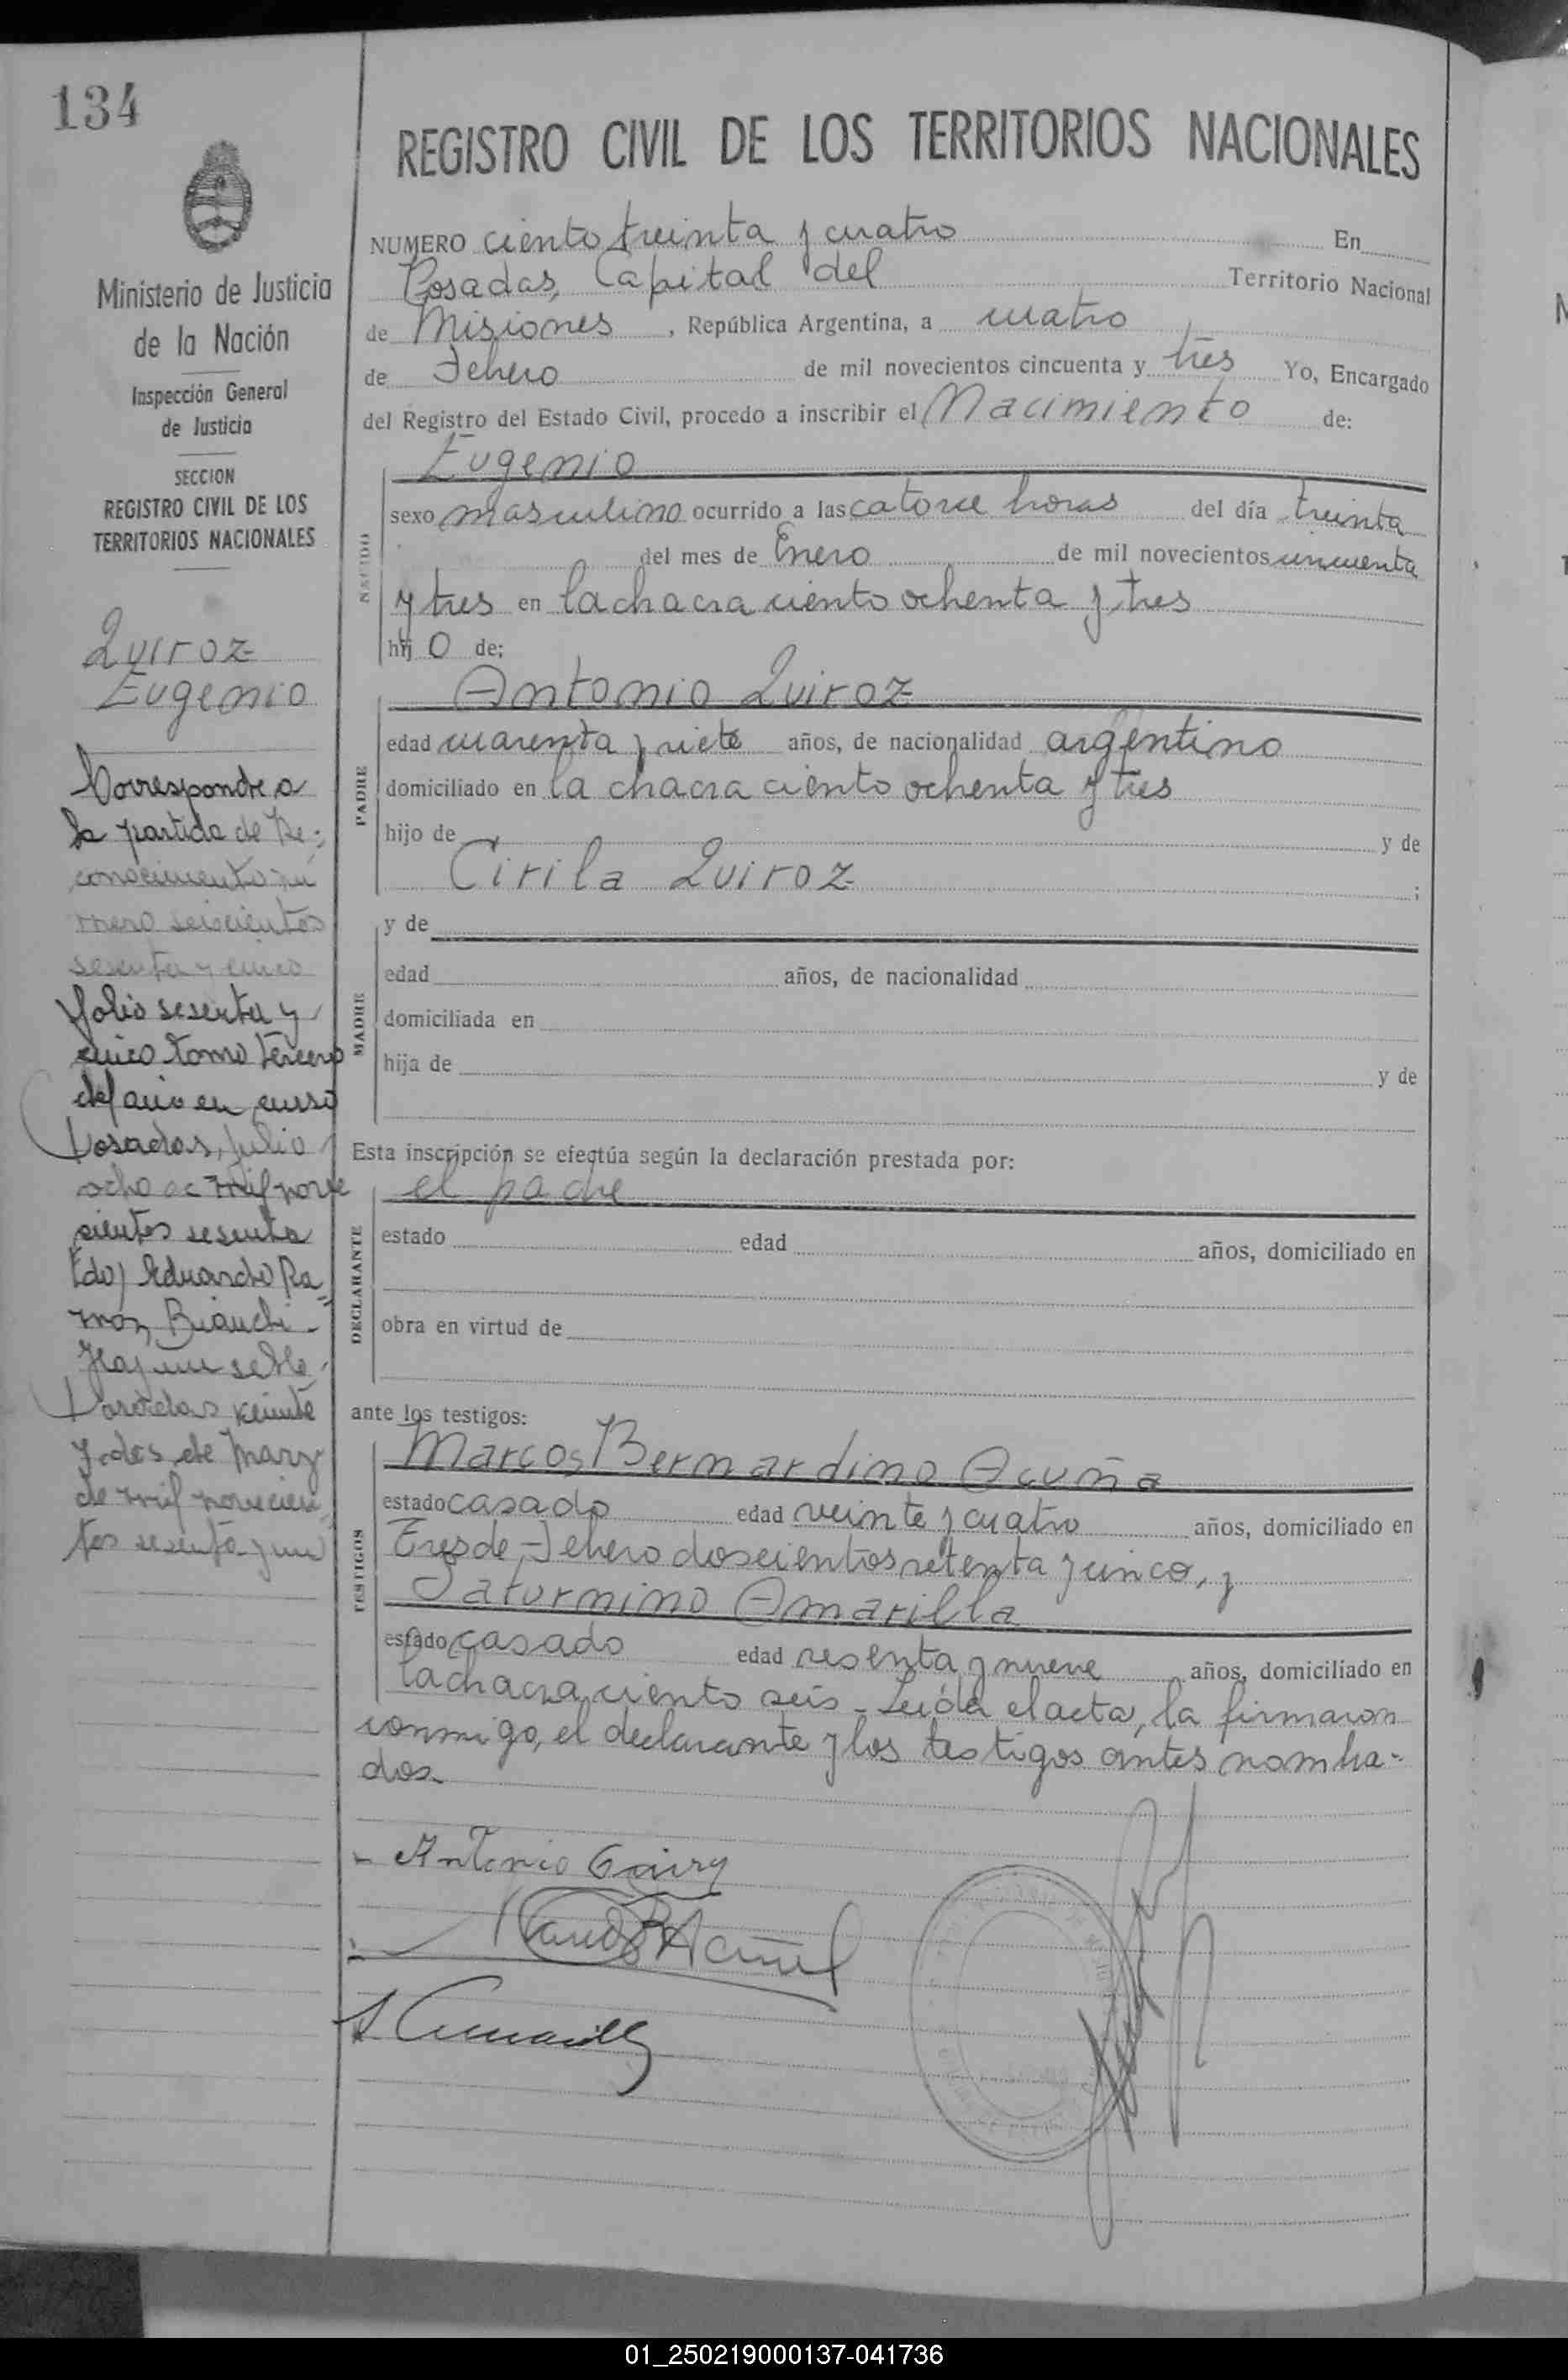 134
REGISTRO CIVIL DE LOS TERRITORIOS NACIONALES
Ministerio de Justicia
de la Nación
Inspección General
de Justicia
SECCION
REGISTRO CIVIL DE LOS
TERRITORIOS NACIONALES
Quiroz
Eugenio
Corresponde a
la partida de Re-
conocimiento nú
mero seiscientos
sesenta y cinco
folio sesenta y
cinco tomo tercero
del año en curso
Posadas, Julio
ocho de mil nove
cientos sesenta
Fdo) Eduardo Ra-
món Bianchi -
Hay un sello.
Posadas veinte
y dos de Marzo
de mil novecien
tos sesenta y un
NUMERO ciento treinta y cuatro En
Posadas, Capital del Territorio Nacional
de Misiones, República Argentina, a cuatro
de Febrero de mil novecientos cincuenta y tres Yo, Encargado
del Registro del Estado Civil, procedo a inscribir el Nacimiento de:
NACIDO
Eugenio
sexo masculino ocurrido a las catorce horas del día treinta
del mes de Enero de mil novecientos cincuenta
y tres en la chacra ciento ochenta y tres
hij o de:
PADRE
Antonio Quiroz
edad cuarenta y siete años, de nacionalidad argentino
domiciliado en la chacra ciento ochenta y tres
hijo de y de
Cirila Quiroz ;
MADRE
y de
edad años, de nacionalidad
domiciliada en
hija de y de
Esta inscripción se efectúa según la declaración prestada por:
DECLARANTE
el padre
estado edad años, domiciliado en
obra en virtud de
ante los testigos:
TESTIGOS
Marcos Bernardino Acuña
estado casado edad veinte y cuatro años, domiciliado en
Tres de Febrero doscientos setenta y cinco, y
Saturnino Amarilla
estado casado edad sesenta y nueve años, domiciliado en
la chacra ciento seis - Leída el acta, la firmaron
conmigo, el declarante y los testigos antes nombra-
dos.
Antonio
01_250219000137-041736